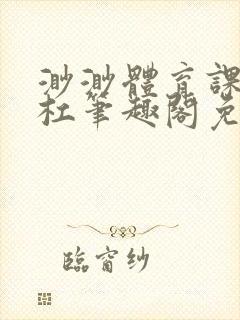 渺渺體育課
杜筆趣閣免
臨窗紗